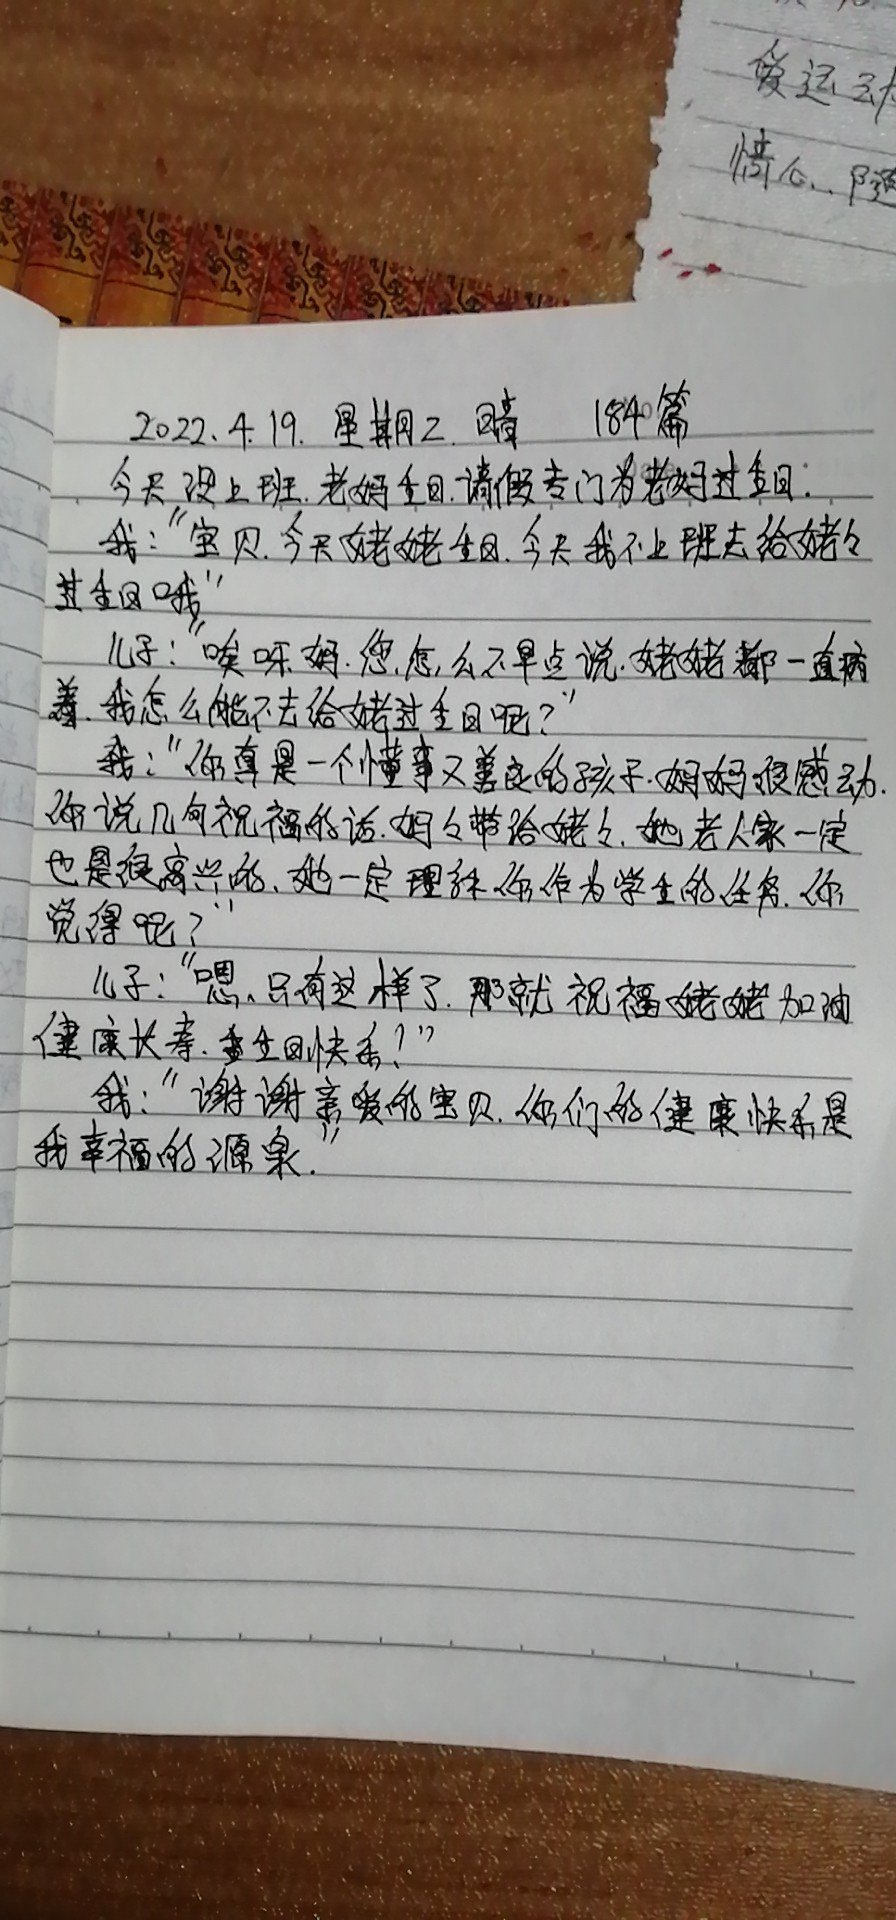 爱运动
情心..随
2022.4.19.星期二.晴 184篇
今天没上班.老妈生日.请假专门为老妈过生日.
我:"宝贝.今天姥姥生日.今天我不上班去给姥々
过生日哦"
儿子:"唉呀.妈.您.怎么不早点说.姥姥都一直病
着.我怎么能不去给姥过生日呢?"
我:"你真是一个懂事又善良的孩子.妈妈很感动.
你说几句祝福的话.妈々带给姥々.她老人家一定
也是很高兴的.她一定理解你作为学生的任务.你
觉得呢?"
儿子:"嗯.只有这样了.那就祝福姥姥加油
健康长寿.生日快乐!"
我:"谢谢亲爱的宝贝.你们的健康快乐是
我幸福的源泉."